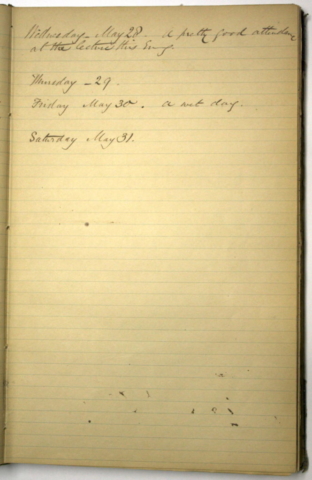 Wednesday - May 28 - A pretty good attendance
at the lecture this Evng.
Thursday - 29.
Friday May 30. a wet day.
Saturday May 31.